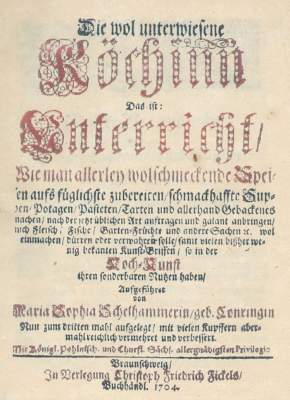 Die wol unterwiesene
Köchinn
Das ist:
Unterricht/
Wie man allerley wolschmeckende Spei-
sen aufs füglichste zubereiten/schmackhaffte Sup-
pen/Potagen/Pasteten/Tarten und allerhand Gebackenes
machen/nach der jetzt üblichen Art auftragen und galant anbringen/
auch Fleisch/Fische/Garten-Früchte und andere Sachen ꝛc. wol
einmachen/dürren oder verwahren solle/samt vielen bißher we-
nig bekanten Kunst-Griffen/so in der
Koch-Kunst
ihren sonderbaren Nutzen haben/
Aufgeführet
von
Maria Sophia Schelhammerin/geb. Conringin
Nun zum dritten mahl aufgelegt/mit vielen Kupffern aber-
mahl reichlich vermehret und verbessert.
Mit Königl. Pohlnisch- und Churfl. Sächs. allergnädigsten Privilegio
Braunschweig/
In Verlegung Christoph Friedrich Fickels/
Buchhändl. 1704.